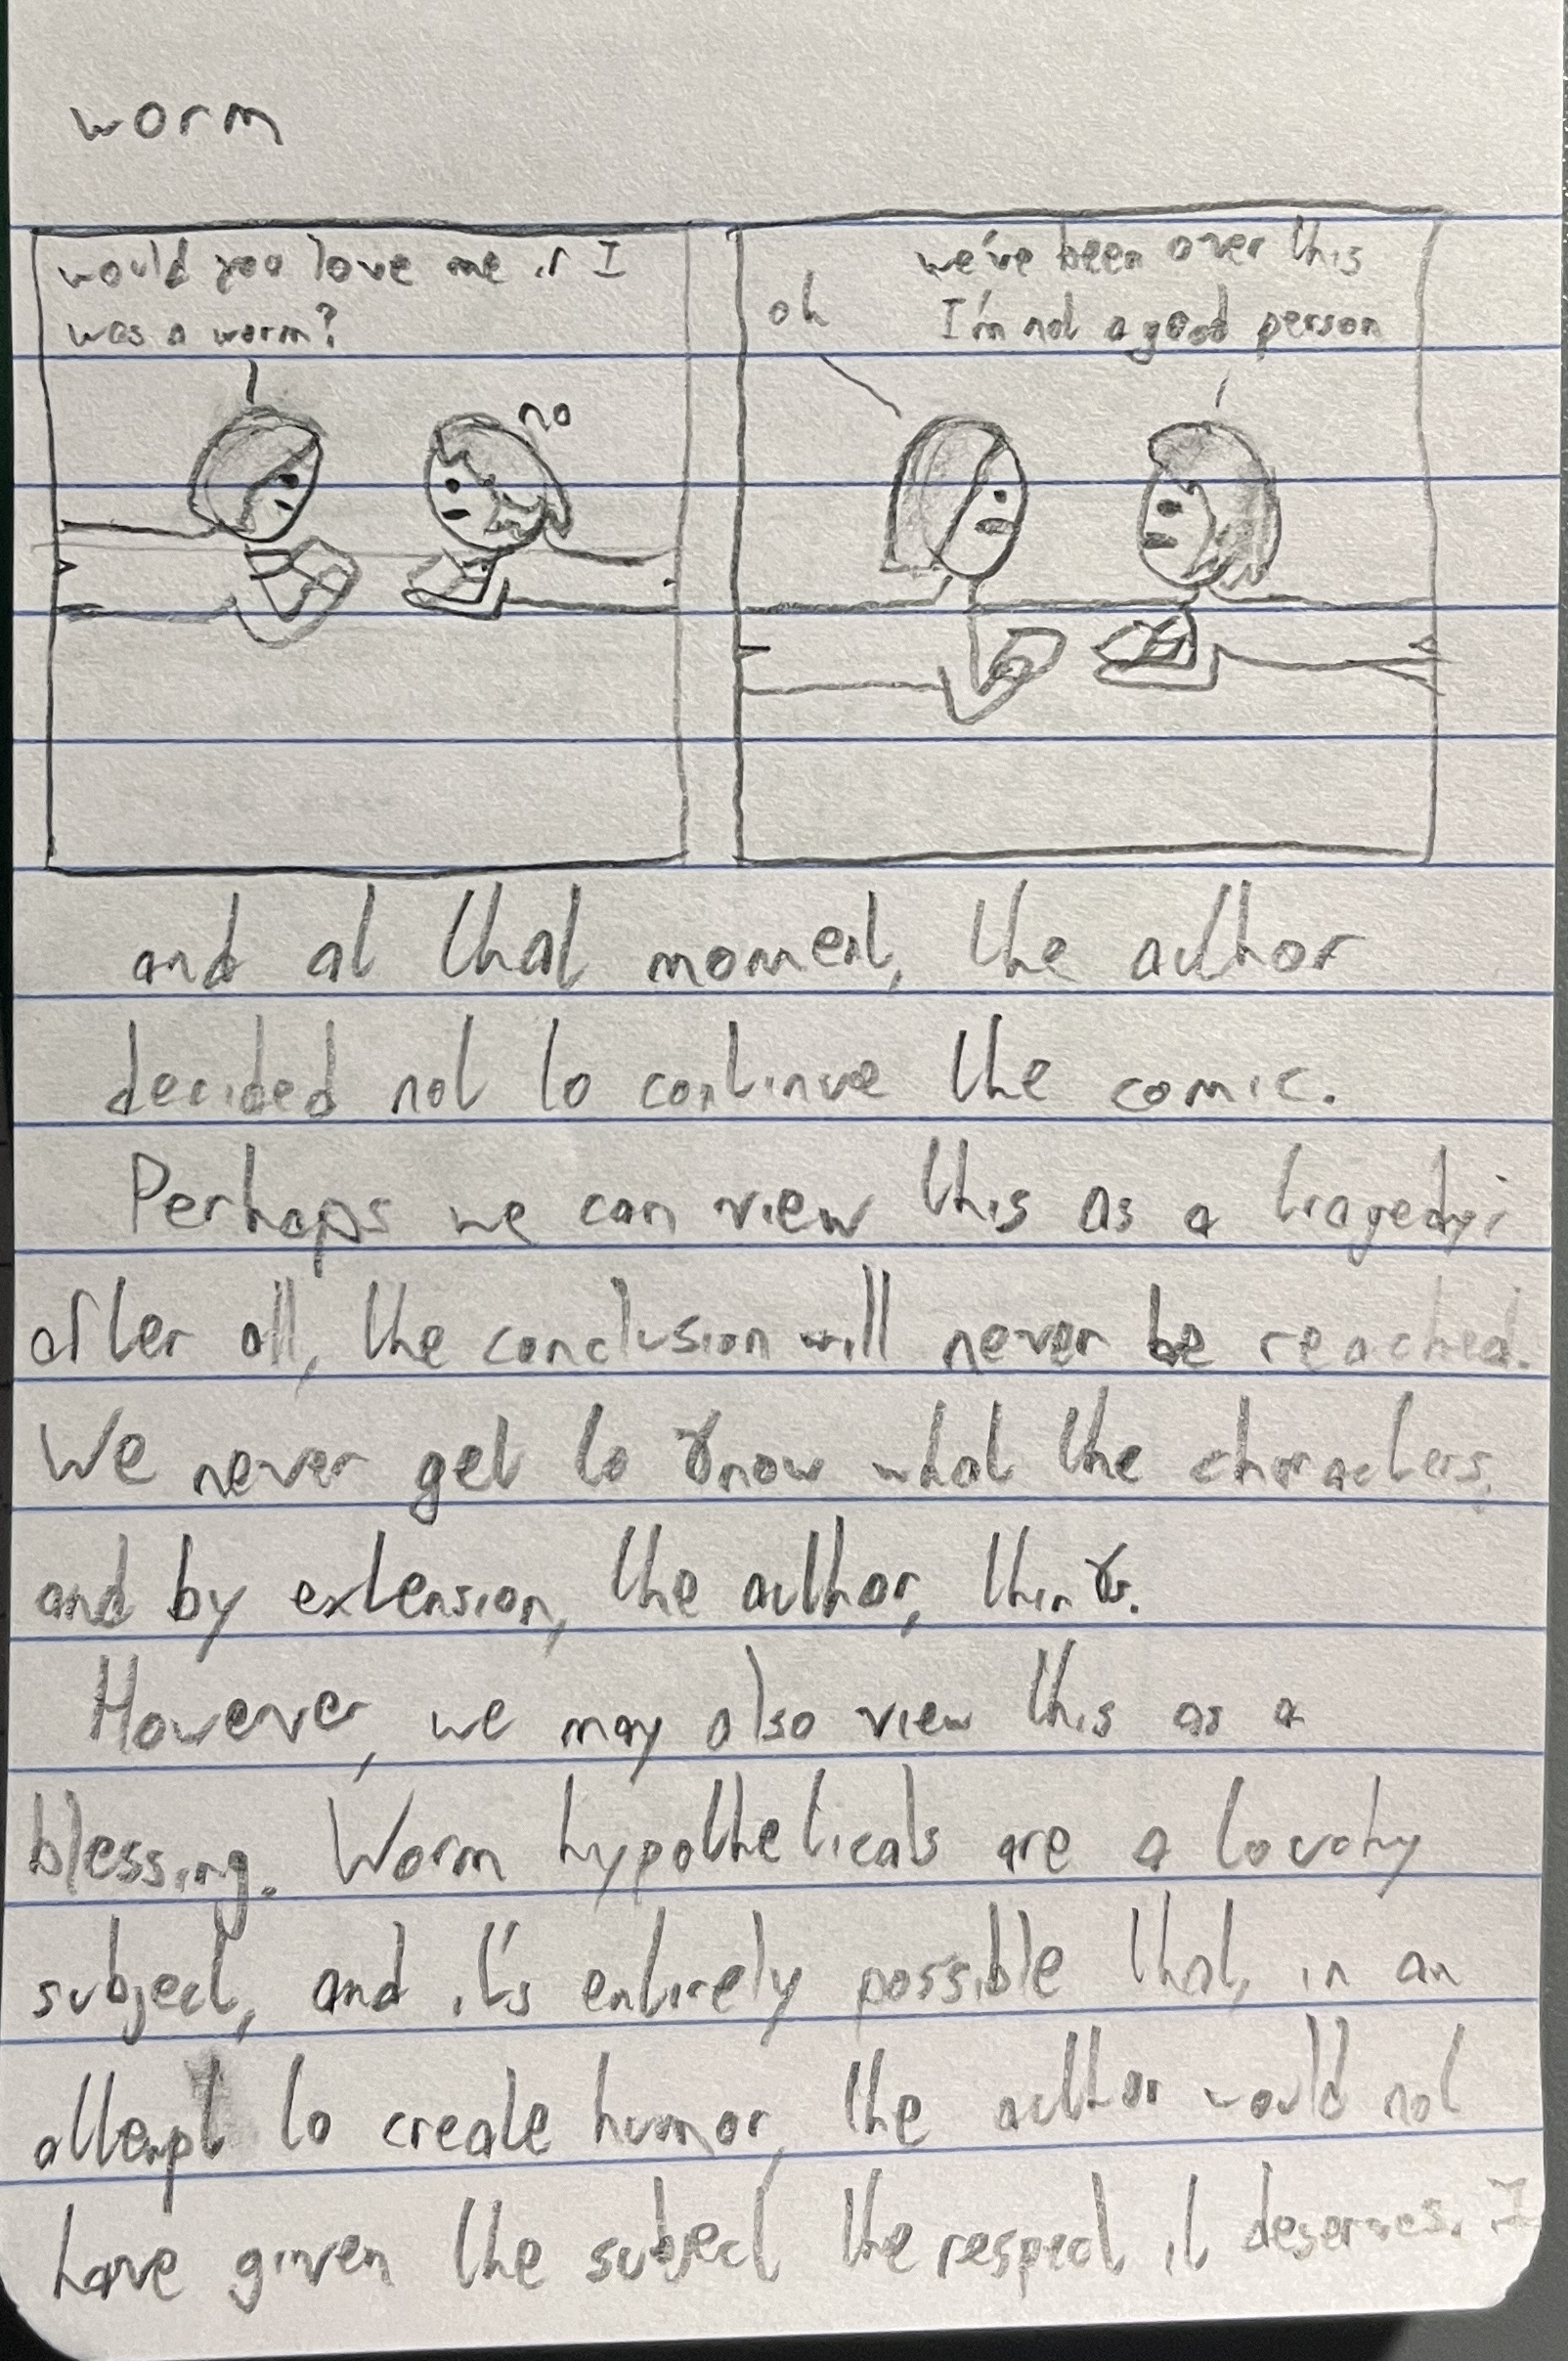 worm
would you love me if I
was a worm?
no
oh
we've been over this
I'm not a good person
and at that moment, the author
decided not to continue the comic.
Perhaps we can view this as a tragedy;
after all, the conclusion will never be reached.
We never get to know what the characters,
and by extension, the author, think.
However, we may also view this as a
blessing. Worm hypotheticals are a touchy
subject, and it's entirely possible that, in an
attempt to create humor, the author would not
have given the subject the respect it deserves. I